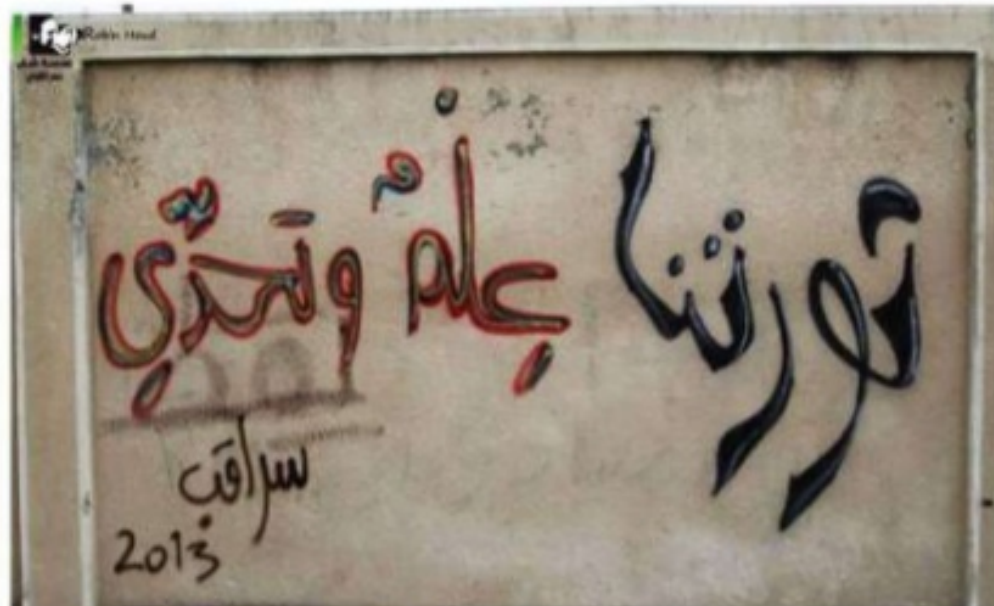 Robin Houd
ثورتنا عِلْمٌ وتحدّي
سراقب
2013